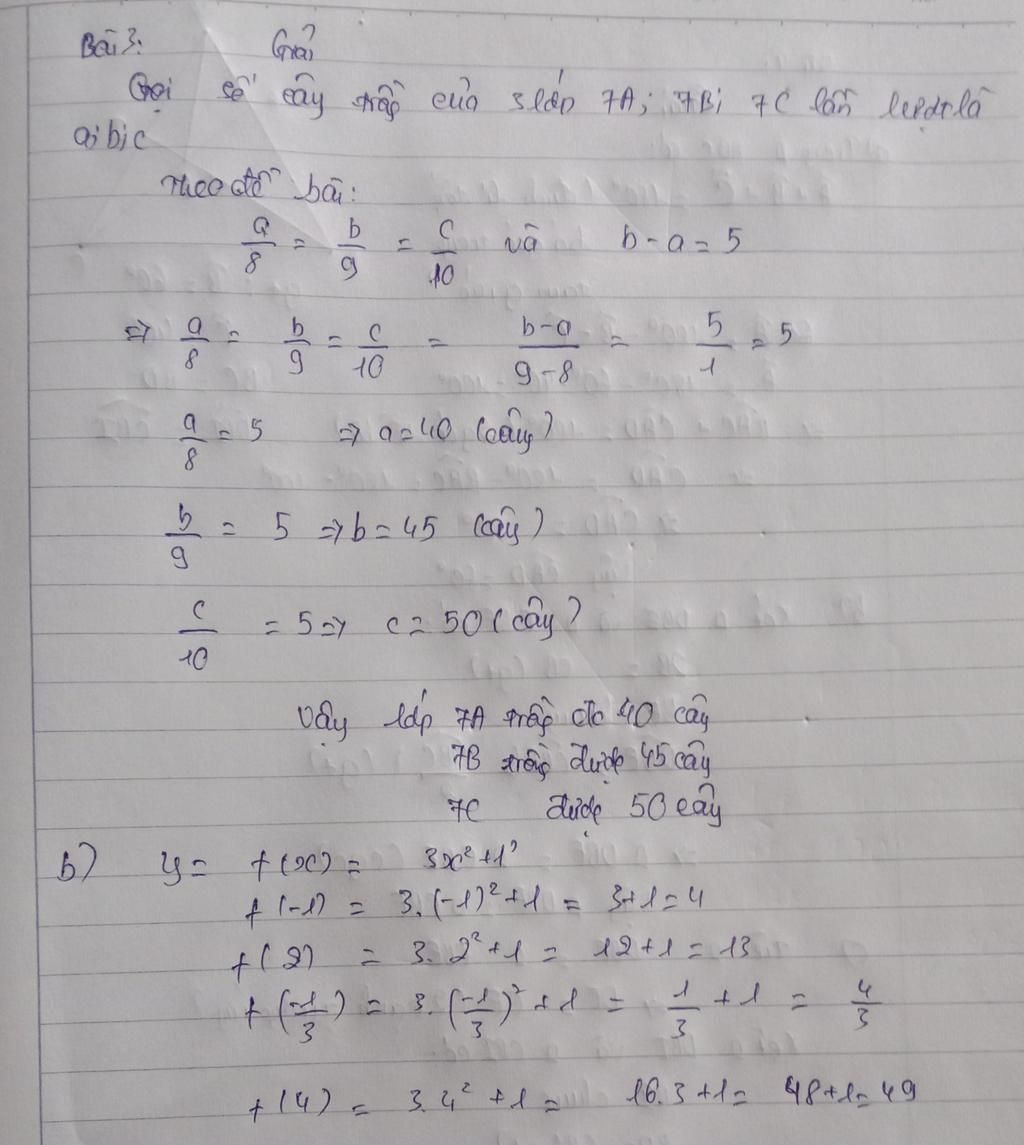 Bài 3: Giải
Gọi số cây trồng của 3 lớp 7A; 7B; 7C lần lượt là
a; b; c
Theo đề bài:
a/8 = b/9 = c/10 và b - a = 5
=> a/8 = b/9 = c/10 = (b-a)/(9-8) = 5/1 = 5
a/8 = 5 => a = 40 (cây)
b/9 = 5 => b = 45 (cây)
c/10 = 5 => c = 50 (cây)
Vậy lớp 7A trồng đc 40 cây
7B trồng được 45 cây
7C được 50 cây
b) y = f(x) = 3x² + 1
f(-1) = 3.(-1)² + 1 = 3+1 = 4
f(2) = 3.2² + 1 = 12 + 1 = 13
f(-1/3) = 3.(-1/3)² + 1 = 1/3 + 1 = 4/3
f(4) = 3.4² + 1 = 16.3 + 1 = 48+1 = 49